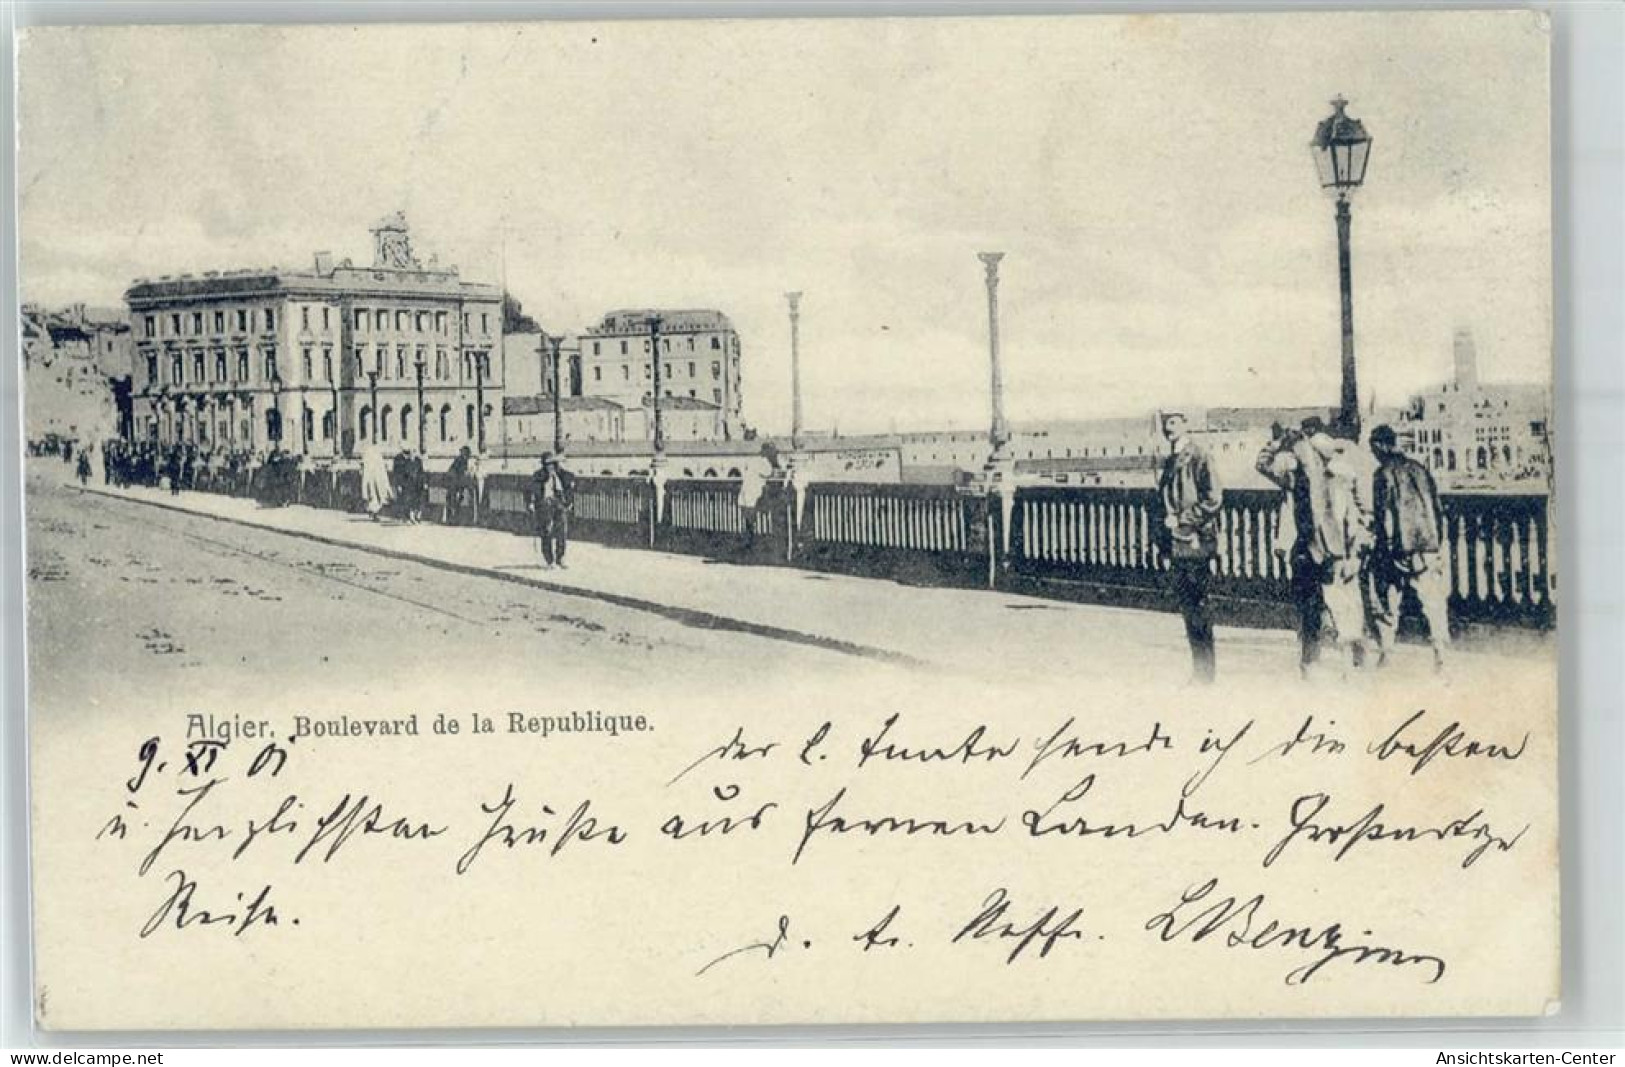 Algier. Boulevard de la Republique.
9. XI 01
der l. Tante sende ich die besten
u. herzlichsten Grüße aus fernen Landen. Großartige
Reise.
d. tr. Neffe.
www.delcampe.net
Ansichtskarten-Center